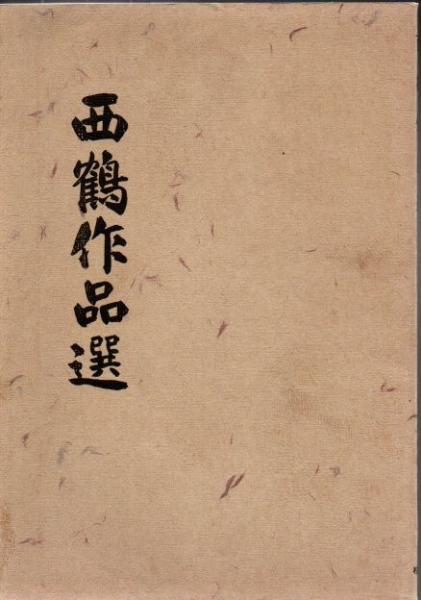 西鶴作品選